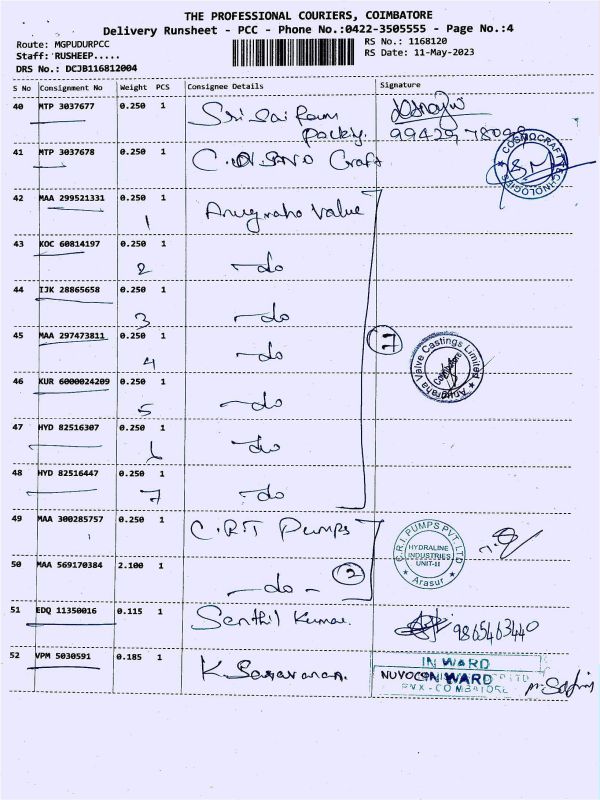 THE PROFESSIONAL COURIERS, COIMBATORE
Delivery Runsheet - PCC - Phone No.:0422-3505555 - Page No.:4
Route: MGPUDURPCC
RS No.: 1168120
Staff: RUSHEEP.....
RS Date: 11-May-2023
DRS No.: DCJB116812004
S No Consignment No Weight PCS Consignee Details Signature
40 MTP 3037677 0.250 1 Sri Sai Ram
41 MTP 3037678 0.250 1 Craft
COSMOCRAFT TECHNOLOGIES
42 MAA 299521331 0.250 1 Anugraha Valve
1
43 KOC 60814197 0.250 1 -do
2
44 IJK 28865658 0.250 1 -do
3
45 MAA 297473811 0.250 1 -do
4
7
Anugraha Valve Castings Limited
Coimbatore
46 KUR 6000024209 0.250 1 -do
5
47 HYD 82516307 0.250 1 -do
6
48 HYD 82516447 0.250 1 -do
7
49 MAA 300285757 0.250 1 C.R.I Pumps
C.R.I. PUMPS PVT. LTD
HYDRALINE
INDUSTRIES
UNIT-II
Arasur
50 MAA 569170384 2.100 1 -do-
2
51 EDQ 11350016 0.115 1 Senthil Kumar. 9865463440
52 VPM 5030591 0.185 1 K. Saravanan.
IN WARD